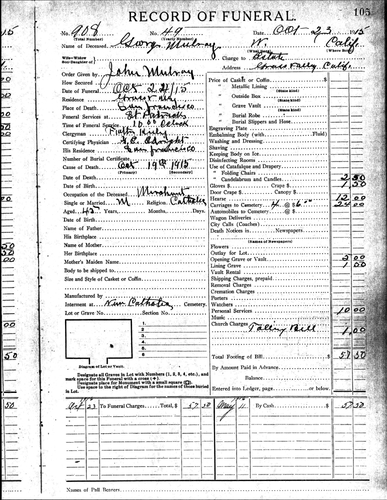 105
RECORD OF FUNERAL.
No. 908 No. 49 Date, Oct - 23 1915
(Total Number) (Yearly Number)
Name of Deceased, George Mulroy W. Calif.
Charge to Estate
Address Grass Valley, Calif.
Order Given by John Mulroy
Date of Funeral Oct 24/15
Residence Grass Valley
Place of Death, San Francisco
Funeral Services at St Patricks
Time of Funeral Service 10 30 O'clock
Clergyman
Certifying Physician
His Residence San Francisco
Number of Burial Certificate
Cause of Death Oct 19th 1915
(Primary) (Secondary)
Date of Death,
Date of Birth,
Occupation of the Deceased Merchant
Single or Married, M Religion, Catholic
Aged 45 Years, Months, Days.
Date of Birth,
Name of Father
His Birthplace
Name of Mother
Her Birthplace
Mother's Maiden Name
Body to be shipped to
Size and Style of Casket or Coffin,
Manufactured by
Interment at New Catholic Cemetery.
Lot or Grave No. Section No.
1
2
3
4
5
6
7
8
Diagram of Lot or Vault.
Designate all Graves in Lot with Numbers (1, 2, 3, 4, etc.), and
mark space for this Funeral with a cross
Designate place for Monument with a small square
Use space to the right of Diagram for names of those buried
in Lot.
Price of Casket or Coffin,
" Metallic Lining
(State kind)
" Outside Box
(State kind)
" Grave Vault
(State kind)
" Burial Robe
" Burial Slippers and Hose
Engraving Plate
Embalming Body (with Fluid)
Washing and Dressing,
Shaving
Keeping Body on Ice
Disinfecting Rooms
Use of Catafalque and Drapery
" Folding Chairs
" Candelabrum and Candles 2 50
Gloves $ Crape $ 1 50
Door Crape $
Hearse 12 00
Carriages to Cemetery 4 @ $6 24 00
Automobiles to Cemetery @ $
Wagon Deliveries
City Calls (Coaches)
Death Notices in Newspapers,
(Names of Newspapers)
Flowers
Outlay for Lot
Opening Grave or Vault 2 00
Lining Grave 1 00
Vault Rental
Shipping Charges, prepaid
Removal Charges
Cremation Charges
Porters
Watchers
Personal Services 10 00
Music
Church Charges
Tolling Bell 1 00
Total Footing of Bill, $ 57.50
By Amount Paid in Advance,
Balance,
Entered into Ledger, page or below.
Oct 23 To Funeral Charges, Total, $ 57.50 May 11 By Cash 57.50
Names of Pall Bearers